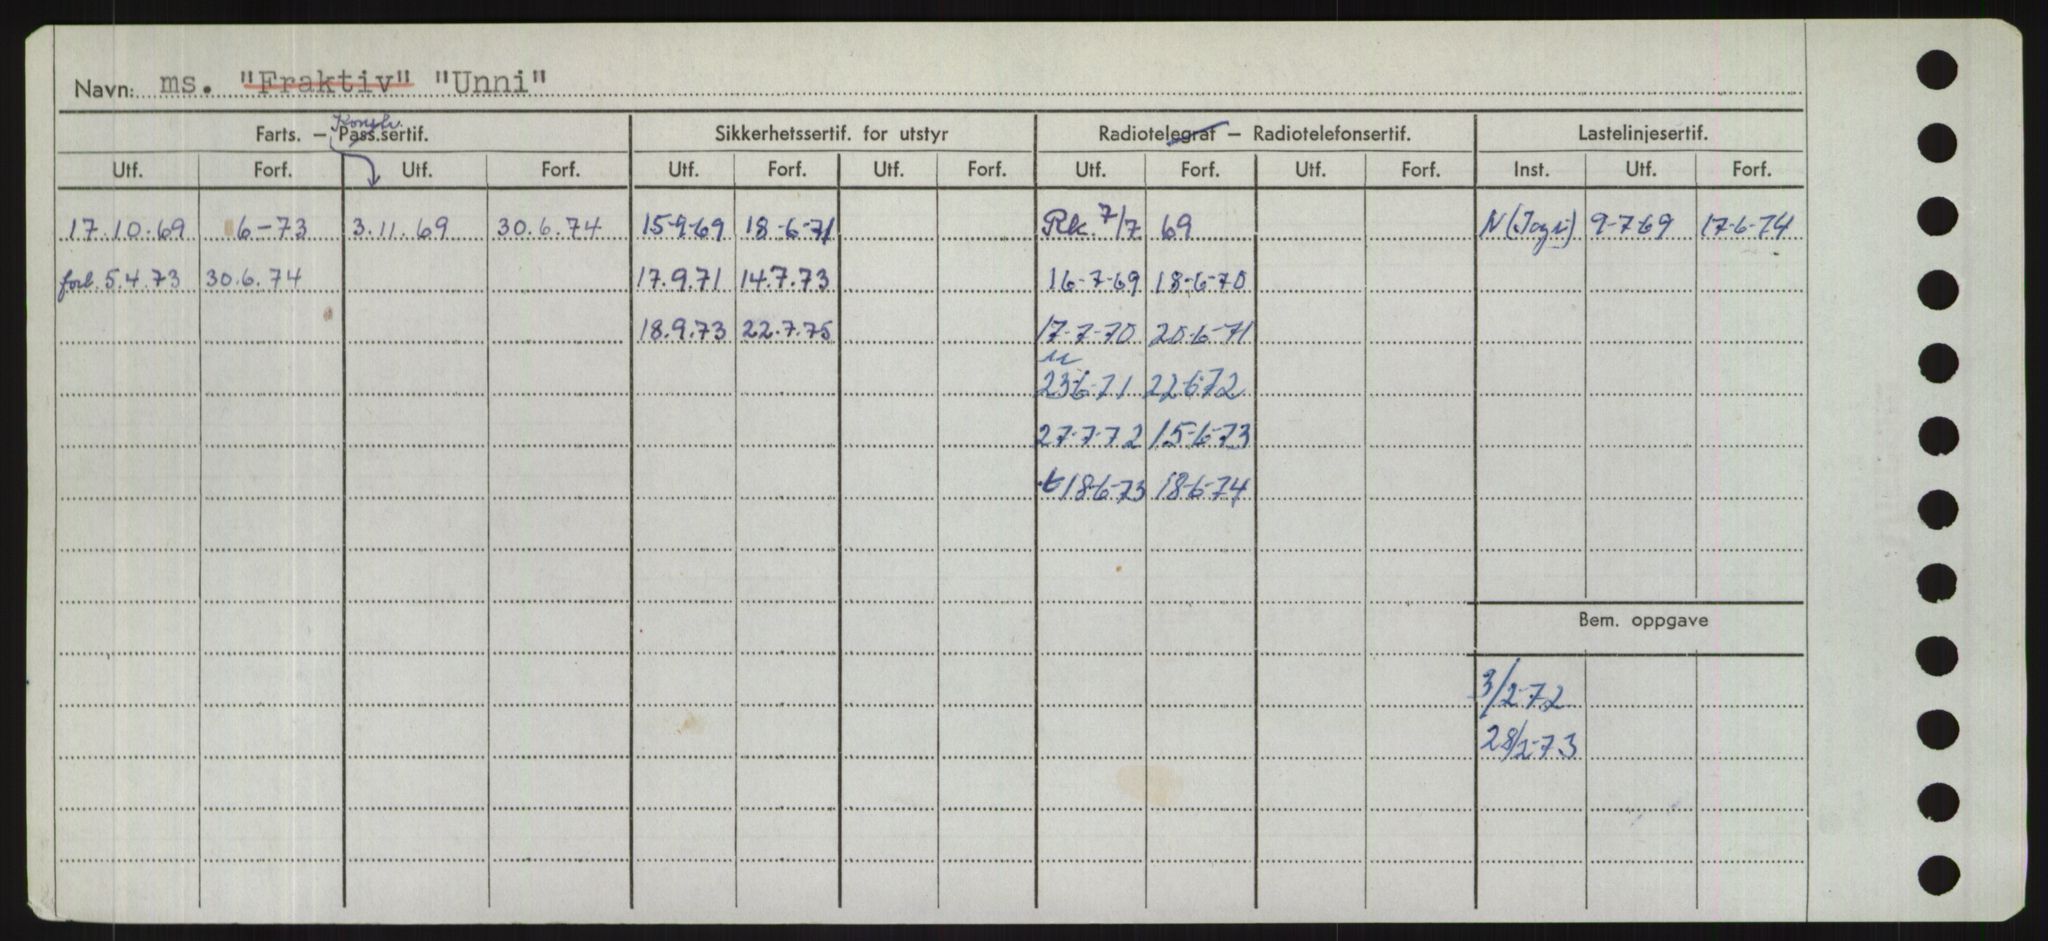 Navn: ms. "Fraktiv" "Unni"
Konstr.
Farts. – Pass.sertif. Sikkerhetssertif. for utstyr Radiotelegraf – Radiotelefonsertif. Lastelinjesertif.
Utf. Forf. Utf. Forf. Utf. Forf. Utf. Forf. Utf. Forf. Utf. Forf. Inst. Utf. Forf.
17.10.69 6-73 3.11.69 30.6.74 15-9-69 18-6-71 Rk. 7/7 69 N 9-7-69 17-6-74
forl. 5.4.73 30.6.74 17.9.71 14.7.73 16-7-69 18-6-70
18.9.73 22.7.75 17-7-70 20-6-71
23-6-71 22-6-72
27-7-72 15-6-73
t 18-6-73 18-6-74
Bem. oppgave
3/2-72
28/2-73